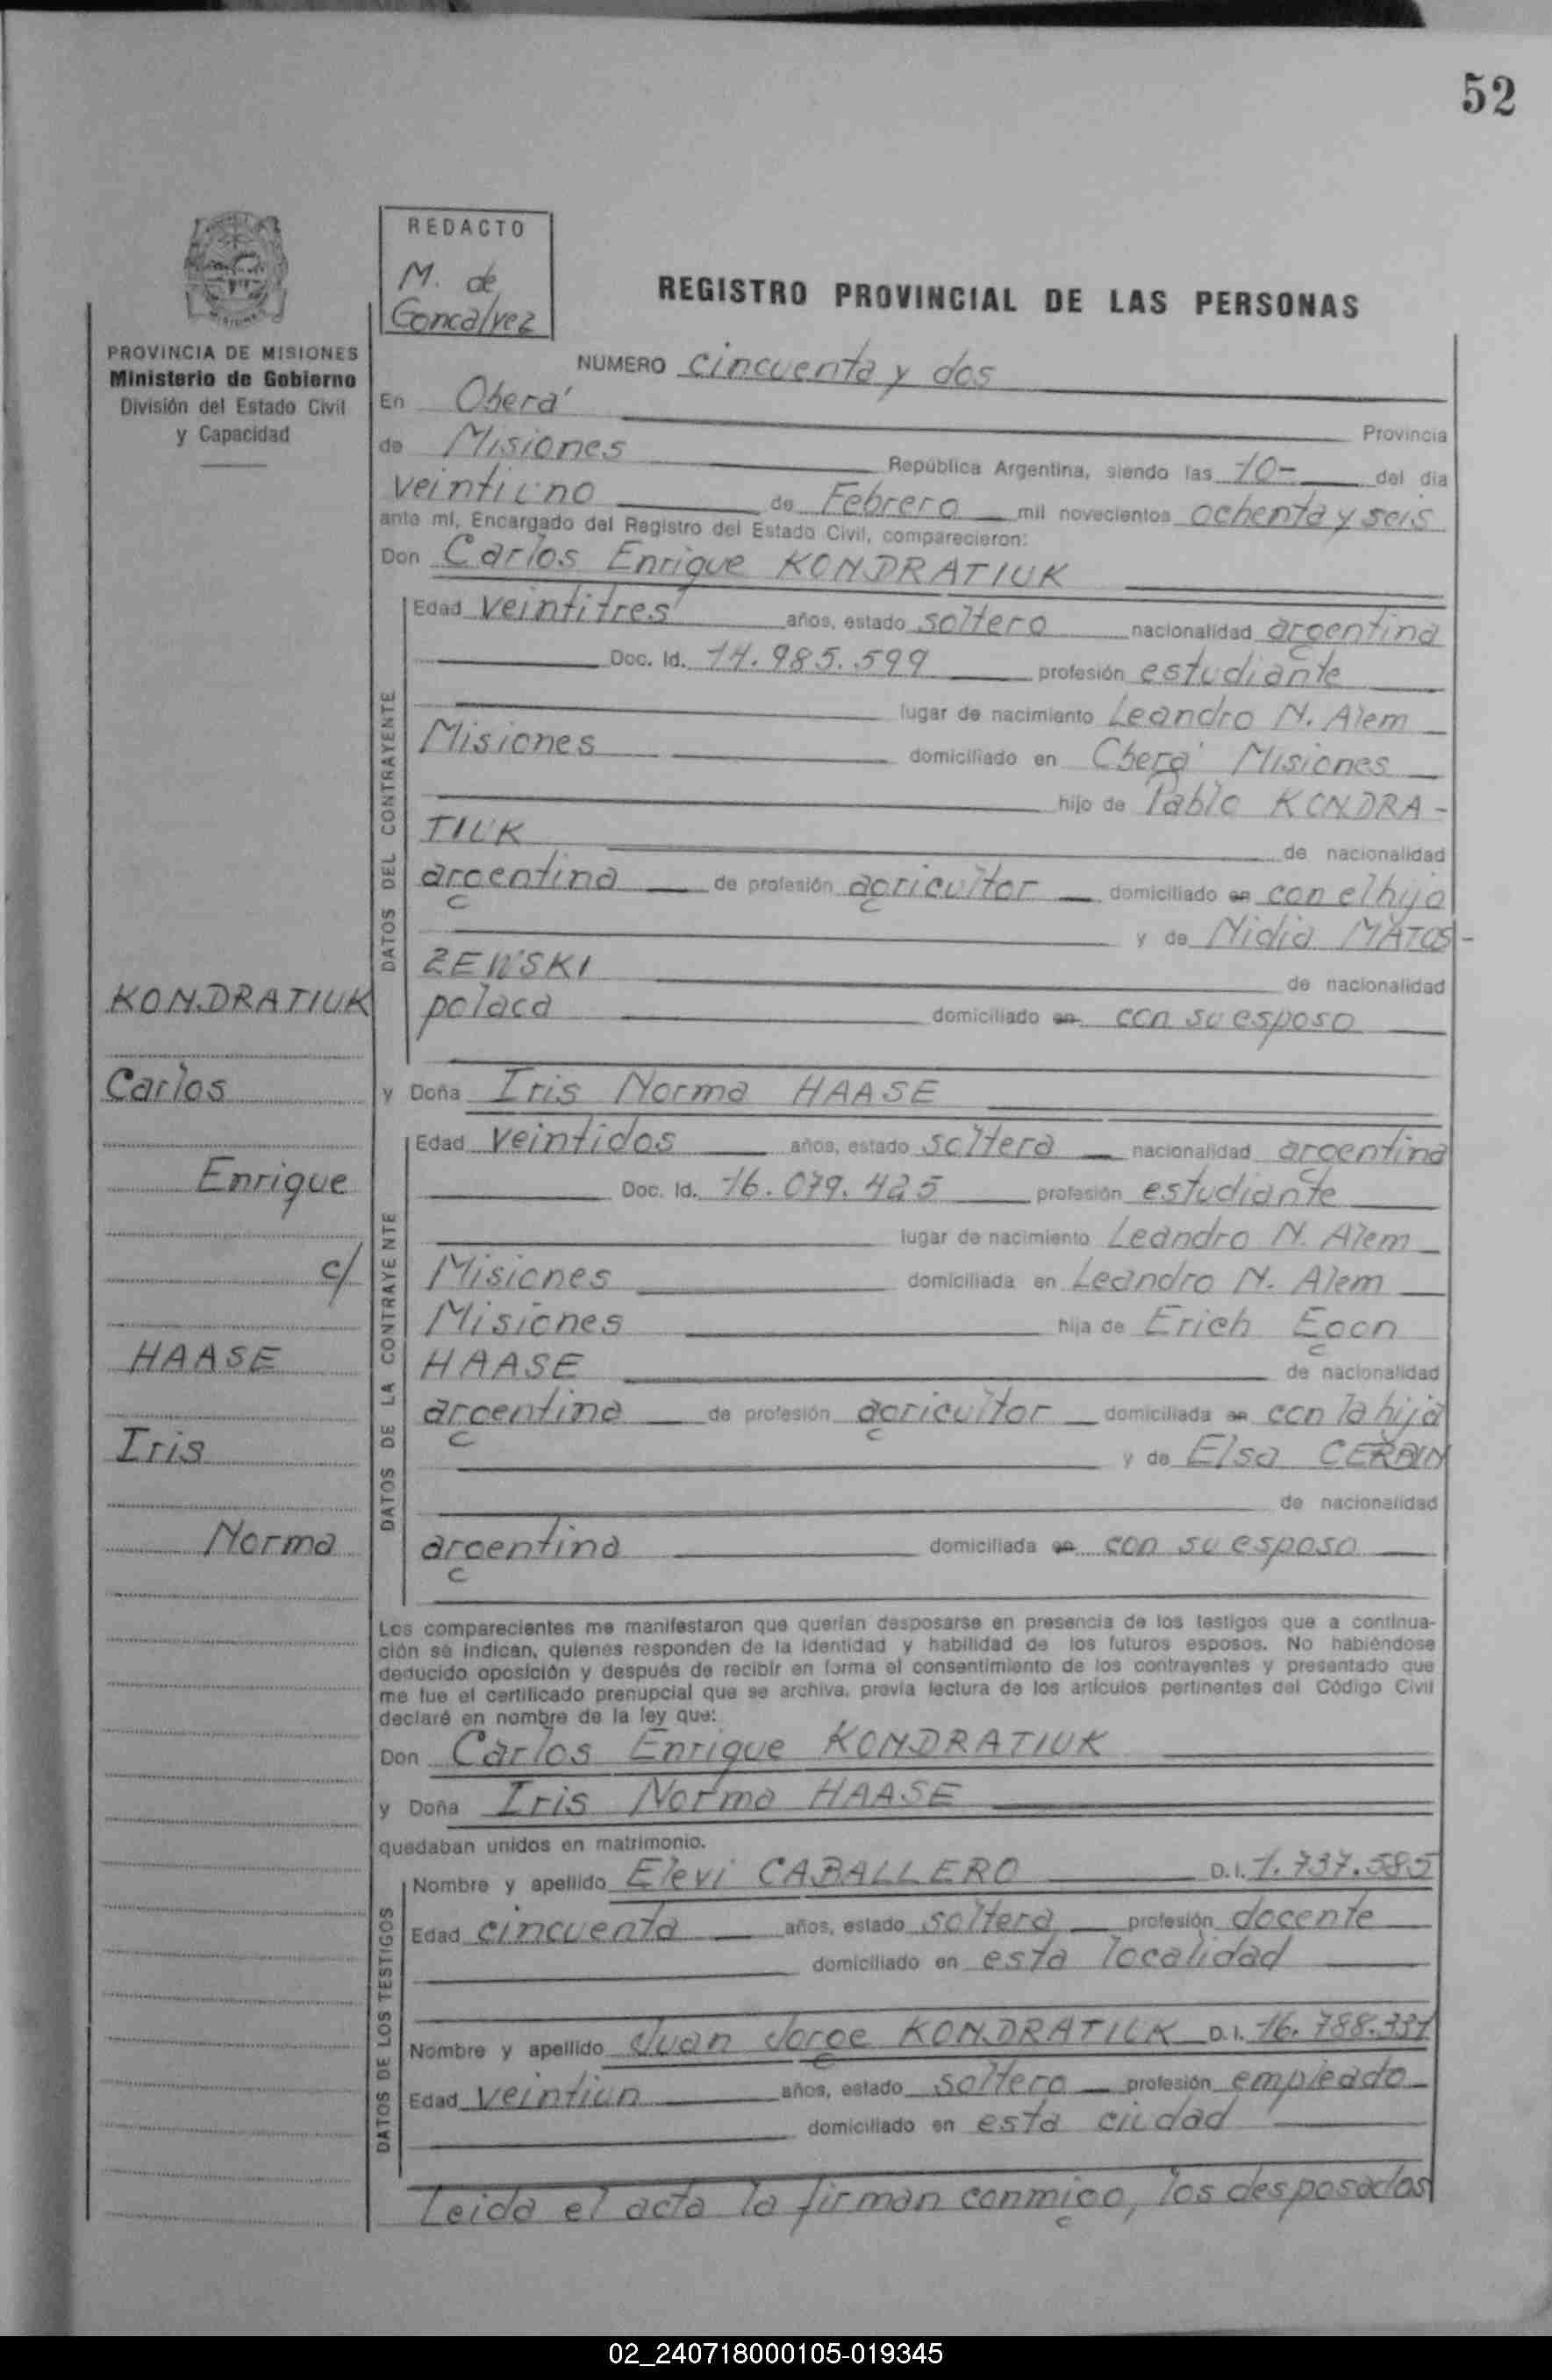 52
REDACTO
M. de
Goncalvez
REGISTRO PROVINCIAL DE LAS PERSONAS
PROVINCIA DE MISIONES
Ministerio de Gobierno
División del Estado Civil
y Capacidad
NUMERO cincuenta y dos
En Oberá
Provincia
de Misiones República Argentina, siendo las 10- del dia
veintiuno de Febrero mil novecientos ochenta y seis
ante mí, Encargado del Registro del Estado Civil, comparecieron:
Don Carlos Enrique KONDRATIUK
DATOS DEL CONTRAYENTE
Edad veintitres años, estado soltero nacionalidad argentina
Doc. Id. 14.985.599 profesión estudiante
lugar de nacimiento Leandro N. Alem
Misiones domiciliado en Oberá Misiones
hijo de Pablo KONDRA-
TIUK de nacionalidad
argentina de profesión agricultor domiciliado en con el hijo
y de Nidia MATOS-
ZEWSKI de nacionalidad
polaca domiciliado en con su esposo
y Doña Iris Norma HAASE
DATOS DE LA CONTRAYENTE
Edad veintidos años, estado soltera nacionalidad argentina
Doc. Id. 16.079.425 profesión estudiante
lugar de nacimiento Leandro N. Alem
Misiones domiciliada en Leandro N. Alem
Misiones hija de Erich Egon
HAASE de nacionalidad
argentina de profesión agricultor domiciliada en con la hija
y de Elsa
de nacionalidad
argentina domiciliada en con su esposo
KONDRATIUK
Carlos
Enrique
c/
HAASE
Iris
Norma
Los comparecientes me manifestaron que querían desposarse en presencia de los testigos que a continua-
ción se indican, quienes responden de la identidad y habilidad de los futuros esposos. No habiéndose
deducido oposición y después de recibir en forma el consentimiento de los contrayentes y presentado que
me fue el certificado prenupcial que se archiva, previa lectura de los artículos pertinentes del Código Civil
declaré en nombre de la ley que:
Don Carlos Enrique KONDRATIUK
y Doña Iris Norma HAASE
quedaban unidos en matrimonio.
DATOS DE LOS TESTIGOS
Nombre y apellido Elevi CABALLERO D.I. 1.737.585
Edad cincuenta años, estado soltera profesión docente
domiciliado en esta localidad
Nombre y apellido Juan Jorge KONDRATIUK D.I. 16.788.331
Edad veintiun años, estado soltero profesión empleado
domiciliado en esta ciudad
Leida el acta la firman conmigo, los desposados
02_240718000105-019345